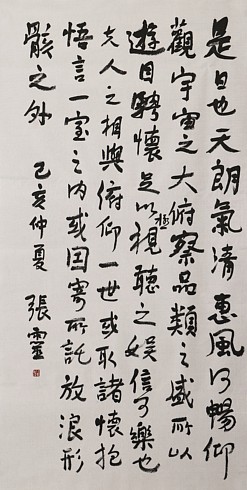 是日也天朗氣清惠風和暢仰
觀宇宙之大俯察品類之盛所以
遊目騁懷足以極視聽之娛信可樂也
夫人之相與俯仰一世或取諸懷抱
悟言一室之內或因寄所託放浪形
骸之外 己亥仲夏 張靈